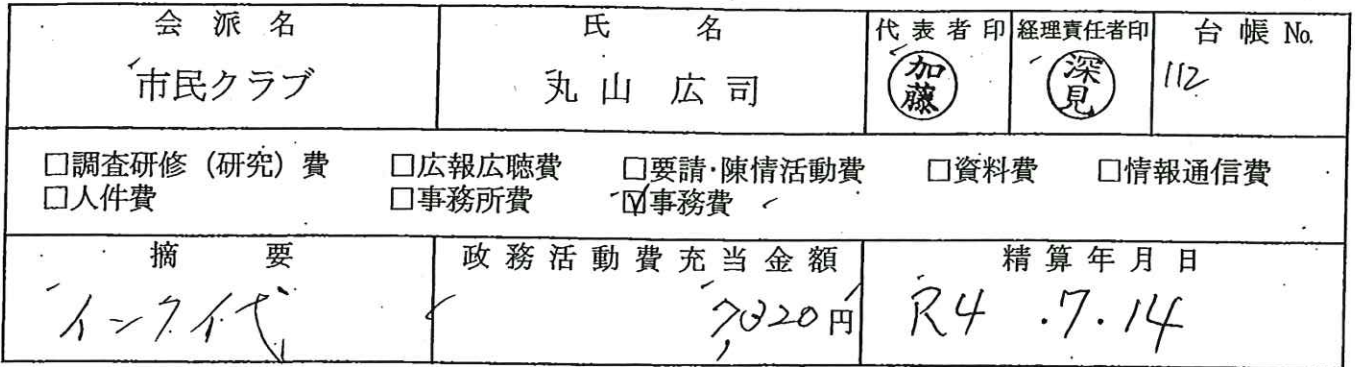 会派名 氏名 代表者印 経理責任者印 台帳No.
市民クラブ 丸山 広司 加藤 深見 112
□調査研修（研究）費 □広報広聴費 □要請・陳情活動費 □資料費 □情報通信費
□人件費 □事務所費 ☑事務費
摘要 政務活動費充当金額 精算年月日
インク代 7,320円 R4.7.14